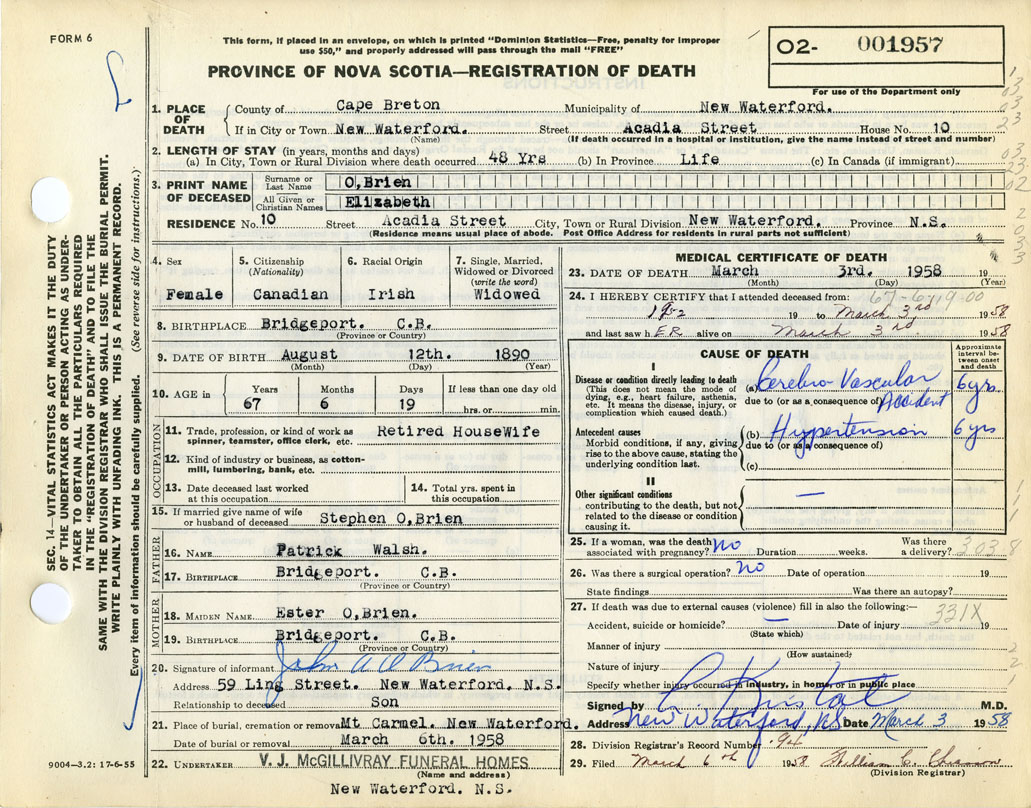 FORM 6
This form, if placed in an envelope, on which is printed "Dominion Statistics—Free, penalty for improper
use $50," and properly addressed will pass through the mail "FREE"
PROVINCE OF NOVA SCOTIA—REGISTRATION OF DEATH
02- 001957
For use of the Department only
SEC. 14—VITAL STATISTICS ACT MAKES IT THE DUTY
OF THE UNDERTAKER OR PERSON ACTING AS UNDER-
TAKER TO OBTAIN ALL THE PARTICULARS REQUIRED
IN THE "REGISTRATION OF DEATH" AND TO FILE THE
SAME WITH THE DIVISION REGISTRAR WHO SHALL ISSUE THE BURIAL PERMIT.
WRITE PLAINLY WITH UNFADING INK. THIS IS A PERMANENT RECORD.
Every item of information should be carefully supplied. (See reverse side for instructions.)
1. PLACE OF DEATH
County of Cape Breton Municipality of New Waterford.
If in City or Town New Waterford. Street Acadia Street House No. 10
(Name) (If death occurred in a hospital or institution, give the name instead of street and number)
2. LENGTH OF STAY (in years, months and days)
(a) In City, Town or Rural Division where death occurred 48 Yrs (b) In Province Life (c) In Canada (if immigrant)
3. PRINT NAME OF DECEASED
Surname or Last Name O,Brien
All Given or Christian Names Elizabeth
RESIDENCE No. 10 Street Acadia Street City, Town or Rural Division New Waterford. Province N.S.
(Residence means usual place of abode. Post Office Address for residents in rural parts not sufficient)
4. Sex Female
5. Citizenship (Nationality) Canadian
6. Racial Origin Irish
7. Single, Married, Widowed or Divorced (write the word) Widowed
8. BIRTHPLACE Bridgeport. C.B.
(Province or Country)
9. DATE OF BIRTH August 12th. 1890
(Month) (Day) (Year)
10. AGE in Years 67 Months 6 Days 19 If less than one day old hrs. or min.
OCCUPATION
11. Trade, profession, or kind of work as spinner, teamster, office clerk, etc. Retired HouseWife
12. Kind of industry or business, as cotton-mill, lumbering, bank, etc.
13. Date deceased last worked at this occupation
14. Total yrs. spent in this occupation
15. If married give name of wife or husband of deceased Stephen O,Brien
FATHER
16. NAME Patrick Walsh.
17. BIRTHPLACE Bridgeport. C.B.
(Province or Country)
MOTHER
18. MAIDEN NAME Ester O,Brien.
19. BIRTHPLACE Bridgeport. C.B.
(Province or Country)
20. Signature of informant John A O Brien
Address 59 Ling Street. New Waterford, N.S.
Relationship to deceased Son
21. Place of burial, cremation or removal Mt Carmel. New Waterford.
Date of burial or removal March 6th. 1958
22. UNDERTAKER V. J. McGILLIVRAY FUNERAL HOMES
(Name and address)
New Waterford. N.S.
9004—3.2: 17-6-55
MEDICAL CERTIFICATE OF DEATH
23. DATE OF DEATH March 3rd. 1958 19
(Month) (Day) (Year)
24. I HEREBY CERTIFY that I attended deceased from: 67-6-19-00
1952 19 to March 3rd 1958
and last saw h ER alive on March 3rd 1958
CAUSE OF DEATH
Approximate interval between onset and death
I
Disease or condition directly leading to death
(This does not mean the mode of dying, e.g., heart failure, asthenia, etc. It means the disease, injury, or complication which caused death.)
(a) Cerebro Vascular Accident 6 yrs.
due to (or as a consequence of)
Antecedent causes
Morbid conditions, if any, giving rise to the above cause, stating the underlying condition last.
(b) Hypertension 6 yrs
due to (or as a consequence of)
(c)
II
Other significant conditions
contributing to the death, but not related to the disease or condition causing it.
—
25. If a woman, was the death associated with pregnancy? no Duration weeks. Was there a delivery?
26. Was there a surgical operation? no Date of operation 19
State findings Was there an autopsy?
27. If death was due to external causes (violence) fill in also the following:—
331X
Accident, suicide or homicide? — Date of injury 19
(State which)
Manner of injury
(How sustained)
Nature of injury
Specify whether injury occurred in industry, in home, or in public place
Signed by M.D.
Address New Waterford, NS Date March 3 1958
28. Division Registrar's Record Number 94
29. Filed March 6th 1958 William C.
(Division Registrar)